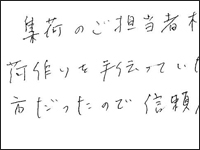 集荷のご担当者様
荷作りを手伝ってい
方だったので信頼